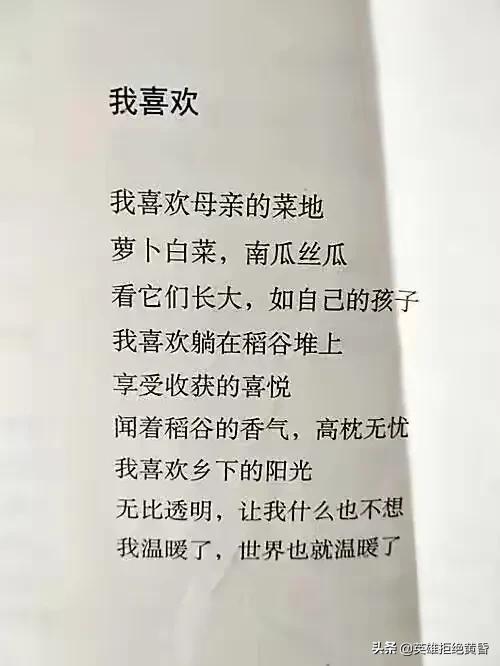 我喜欢
我喜欢母亲的菜地
萝卜白菜，南瓜丝瓜
看它们长大，如自己的孩子
我喜欢躺在稻谷堆上
享受收获的喜悦
闻着稻谷的香气，高枕无忧
我喜欢乡下的阳光
无比透明，让我什么也不想
我温暖了，世界也就温暖了
头条 @英雄拒绝黄昏